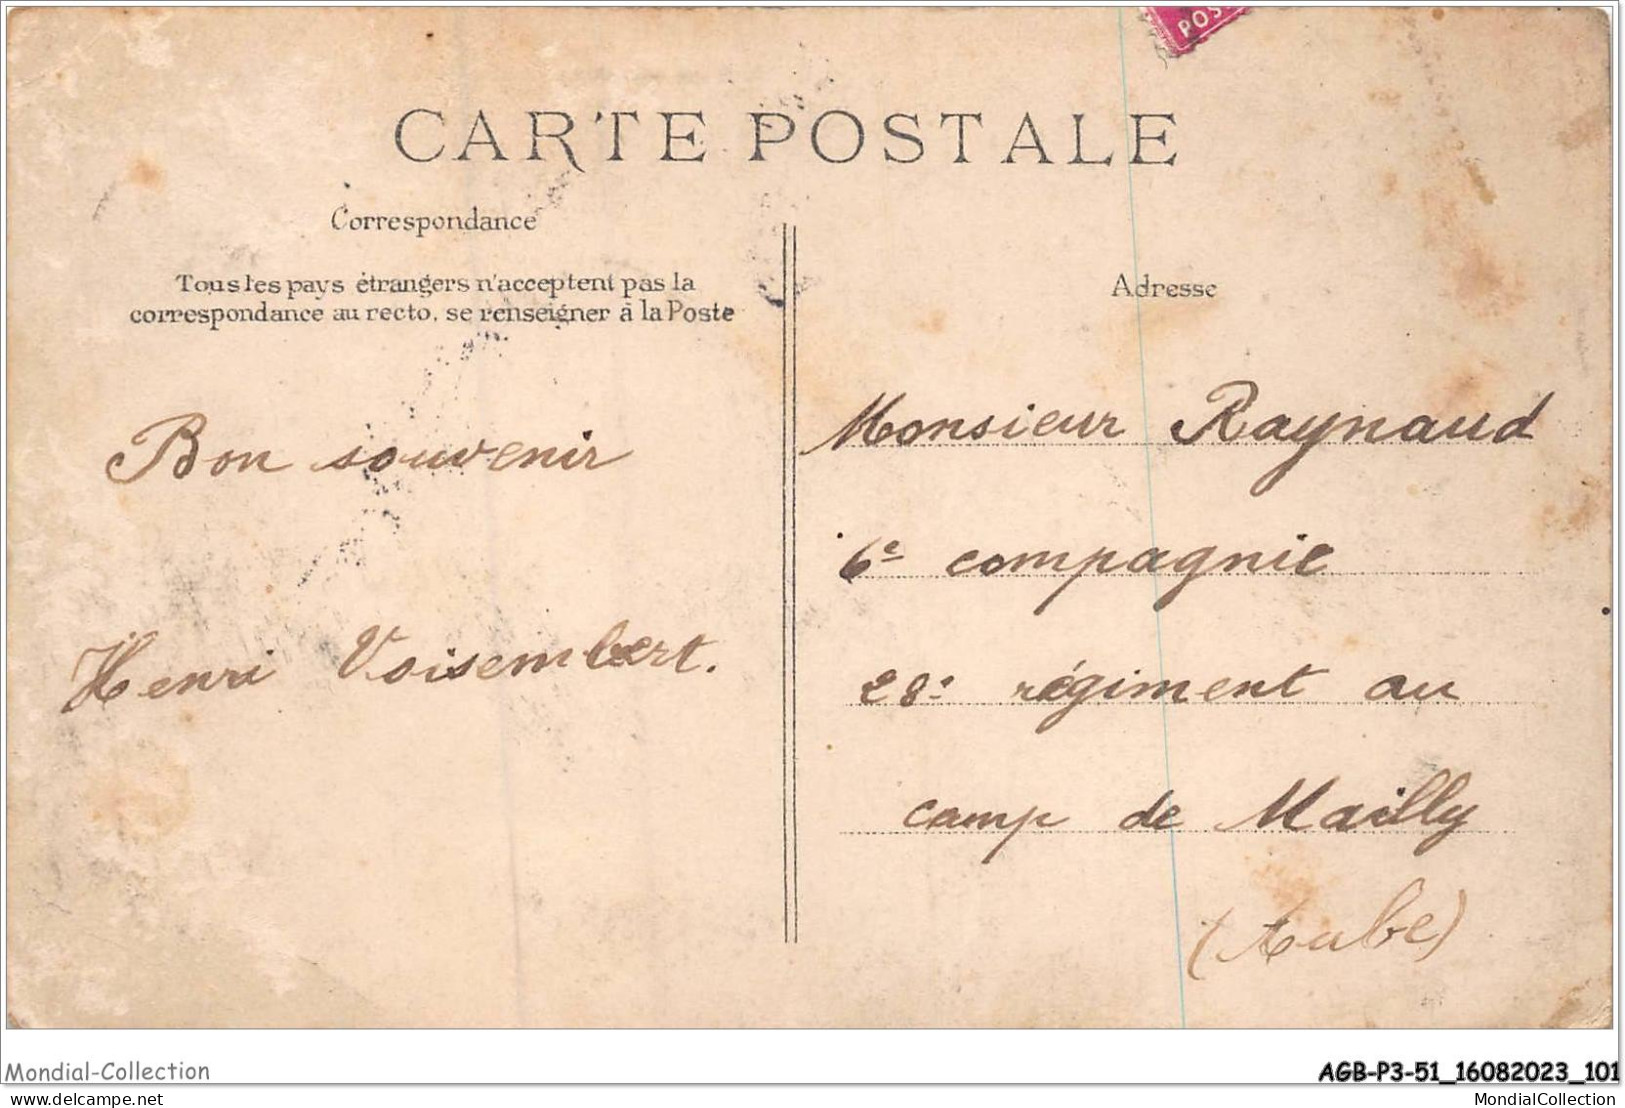 POS
CARTE POSTALE
Correspondance
Tous les pays étrangers n'acceptent pas la
correspondance au recto, se renseigner à la Poste
Bon souvenir
Henri Voisembert.
Adresse
Monsieur Raynaud
6e compagnie
28e régiment au
camp de Mailly
(Aube)
Mondial-Collection
AGB-P3-51_16082023_101
delcampe.net
MondialCollection